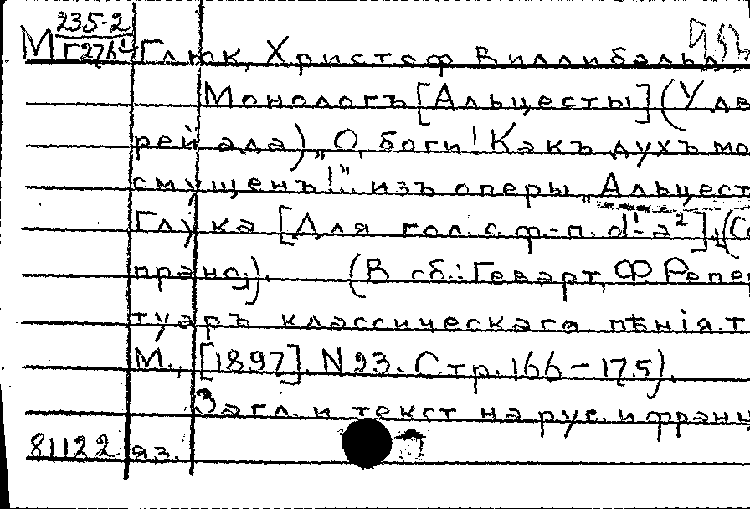 М 235-2
Г276 Глюк, Христоф Виллибальд.
Монологъ [Альцесты] (У две
рей ада) „О, боги! Какъ духъ мо
смущенъ!“ изъ оперы „Альцест
Глука [Для гол. с ф-п. d¹-a²]. (Со
прано). (В сб.: Геварт, Ф. Репер
туаръ классическаго пѣнія. Т.
М., [1897]. N 23. Стр. 166-175).
Загл. и текст на рус. и франц
81122 яз.